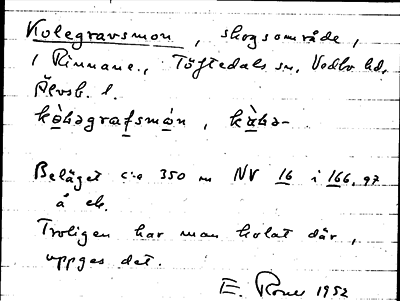 Kolegravsmon, skogsområde,
i Rinnane., Töftedals sn, Vedbo hd,
Älvsb. l.
kɷ̀ləgrafsmón, kɷ̀lə-
Beläget c:a 350 m NV 16 i 166,97
å ek.
Troligen har man kolat där,
uppges det.
E. 1952